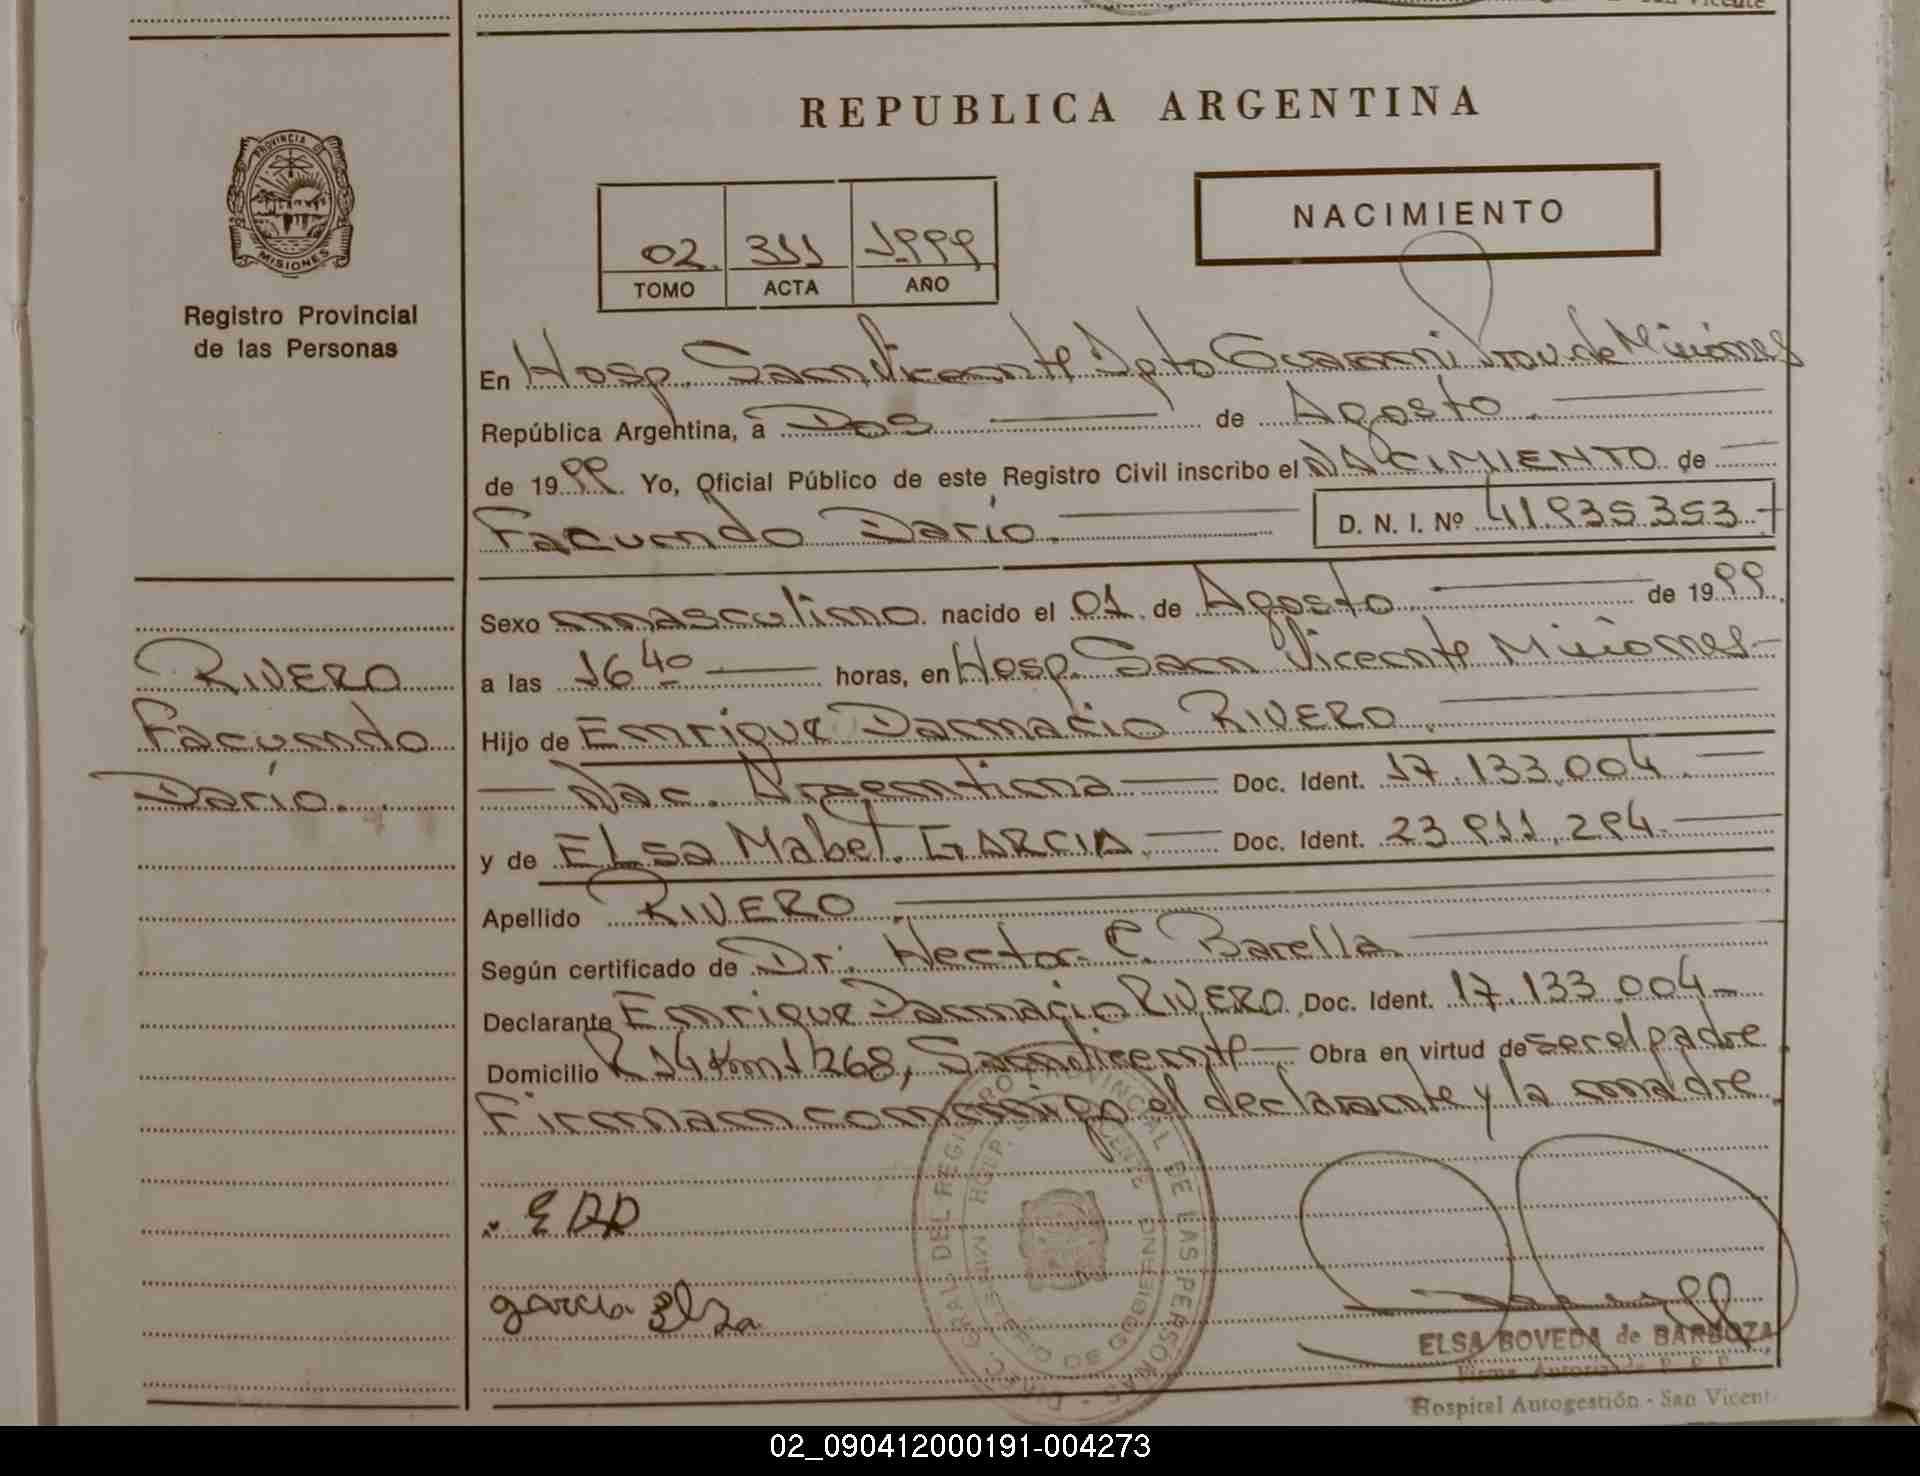 REPUBLICA ARGENTINA
PROVINCIA DE
MISIONES
Registro Provincial
de las Personas
02 311 1999
TOMO ACTA AÑO
NACIMIENTO
En Hosp. San Vicente Dpto Guarani Prov. de Misiones
República Argentina, a Dos de Agosto
de 1999 Yo, Oficial Público de este Registro Civil inscribo el NACIMIENTO de
Facundo Dario. D. N. I. Nº 41.935.353
Sexo masculino nacido el 01 de Agosto de 1999
a las 16 40 horas, en Hosp. San Vicente Misiones
Hijo de Enrique Darmacio RIVERO
Nac. Argentina Doc. Ident. 17.133.004
y de ELsa Mabel. GARCIA Doc. Ident. 23.911.294
Apellido RIVERO
Según certificado de Dr. Hector C. Barella
Declarante Enrique Darmacio RIVERO Doc. Ident. 17.133.004
Domicilio R 14 Km 1268, San Vicente Obra en virtud de ser el padre
Firman conmigo el declarante y la madre
RIVERO
Facundo
Dario.
EDR
garcia Elsa
DEL REGISTRO PROVINCIAL DE LAS PERSONAS
ELSA BOVEDA de BARBOZA
Firma Autorizada
Hospital Autogestión - San Vicent
02_090412000191-004273